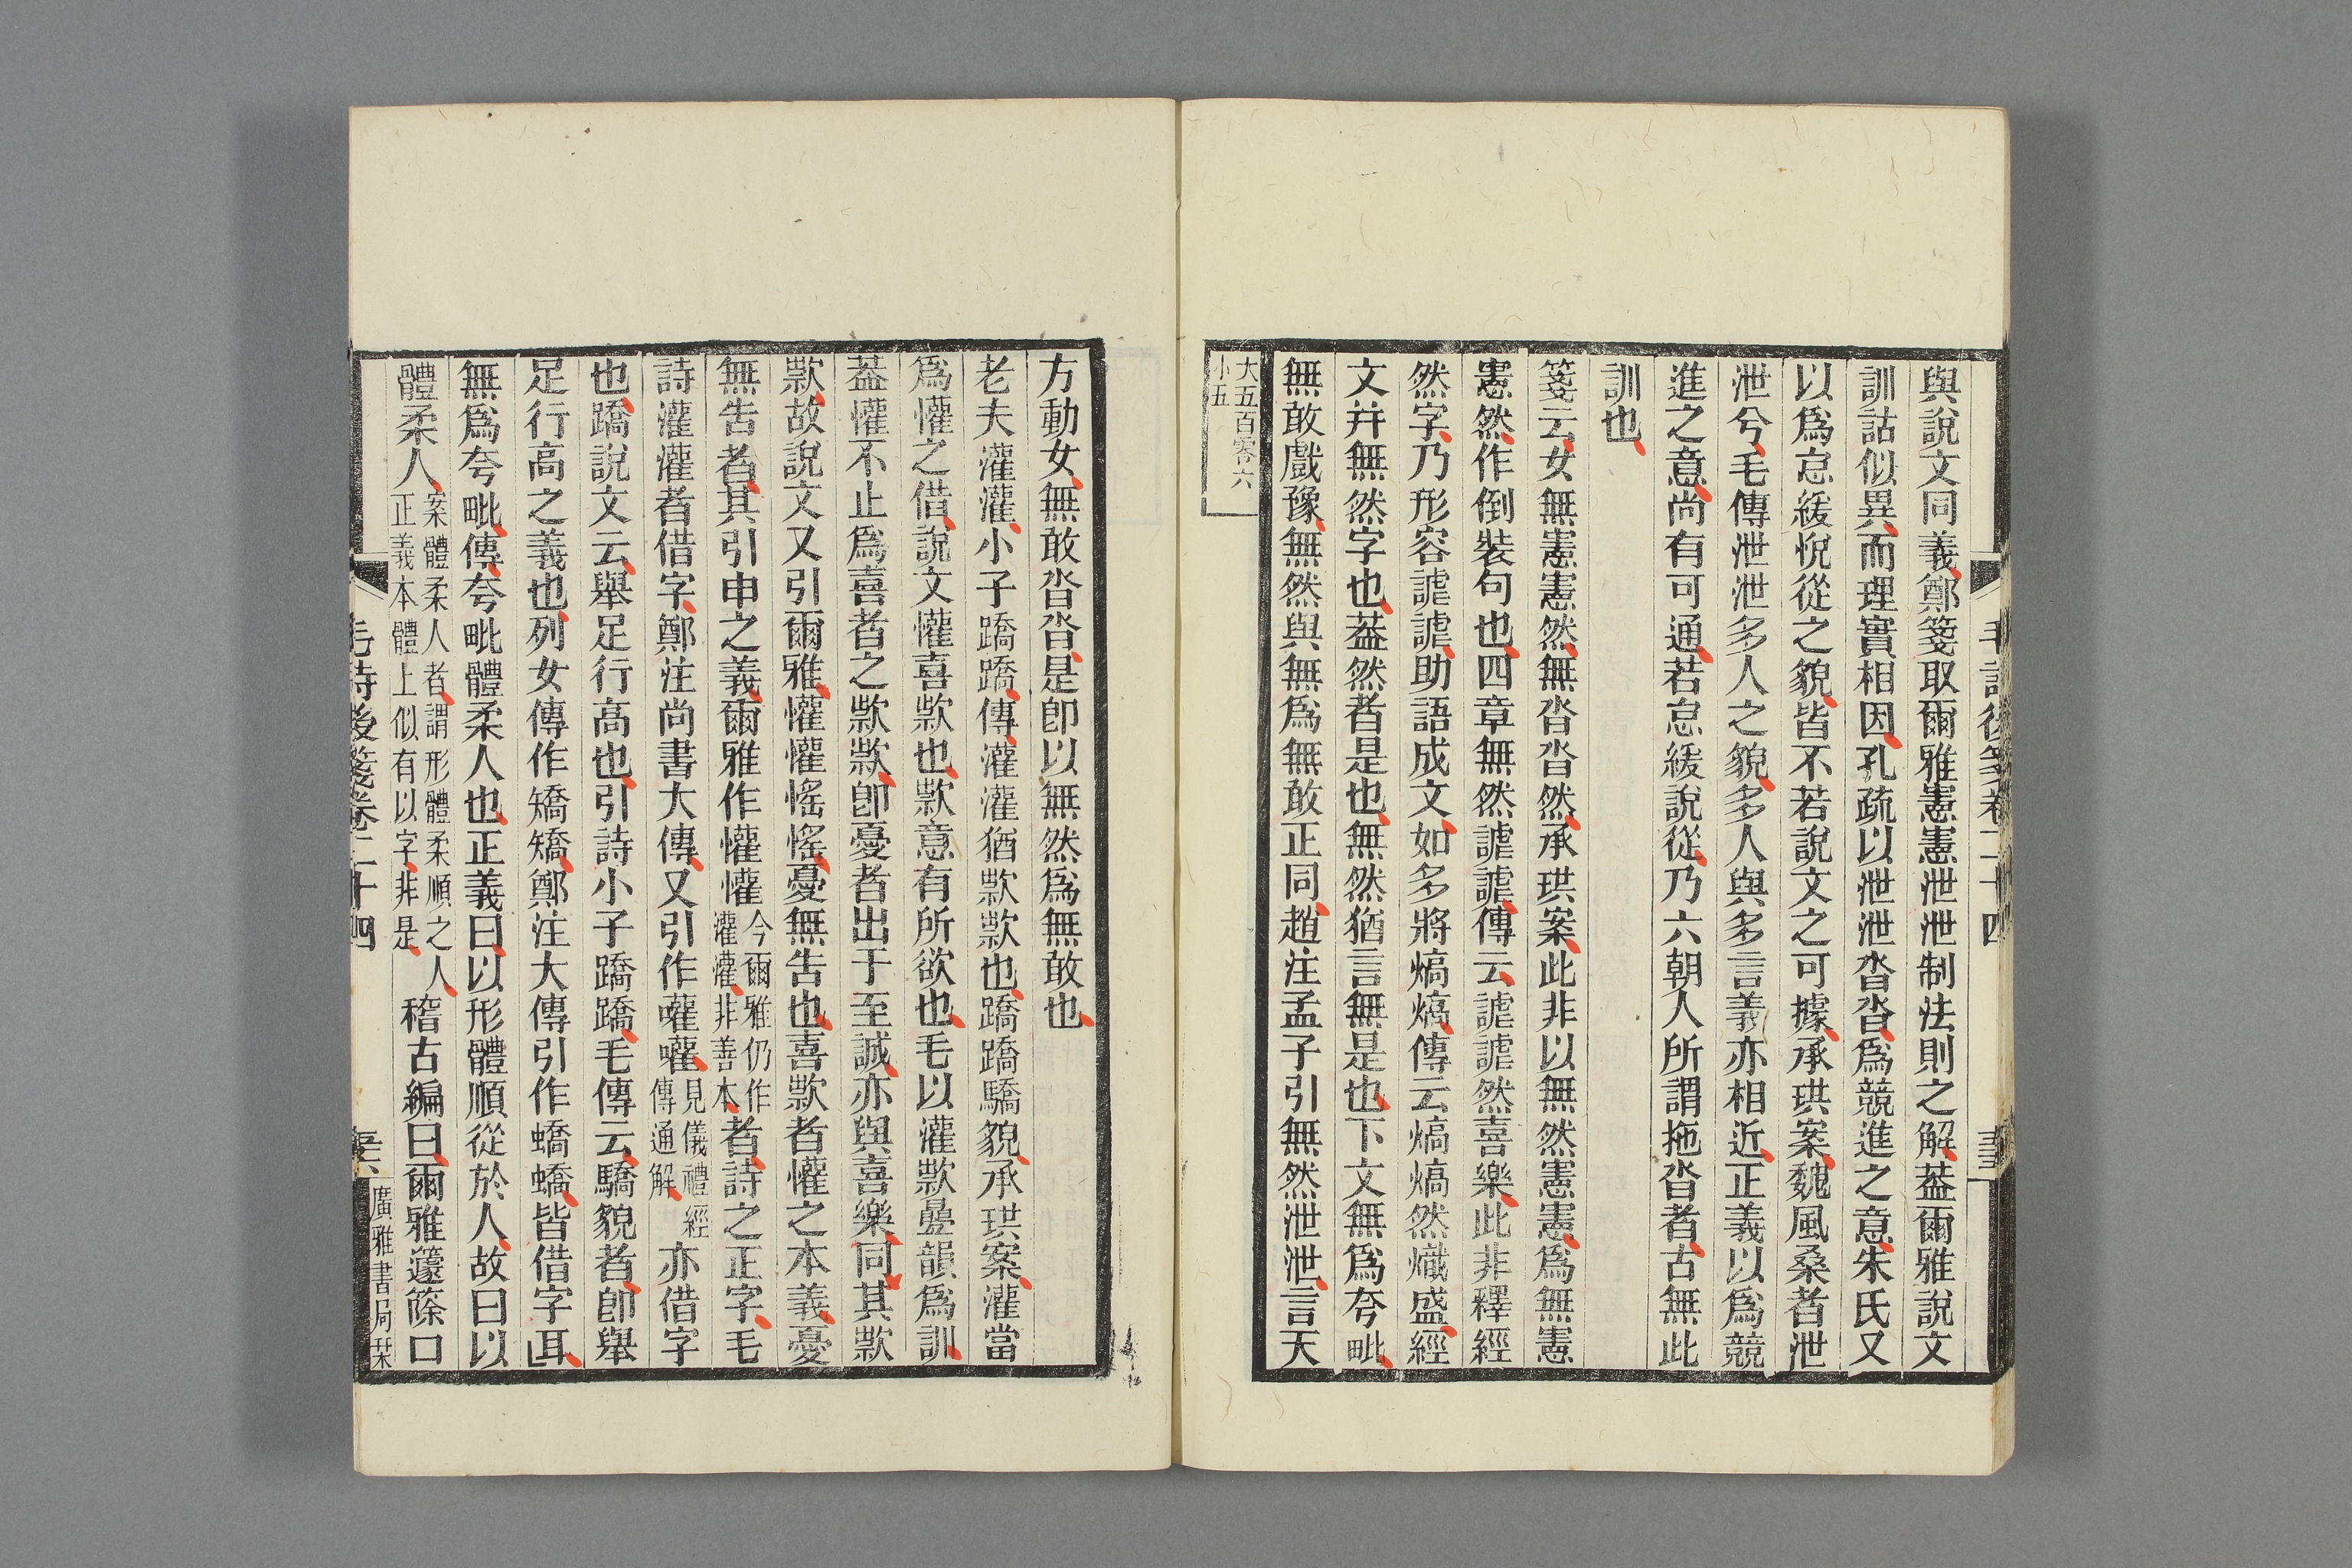 與說文同義鄭箋取爾雅憲憲泄泄制法則之解葢爾雅說文
訓詁似異而理實相因孔疏以泄泄沓沓爲競進之意朱氏又
以爲怠緩悅從之貌皆不若說文之可據承珙案魏風桑者泄
泄兮毛傳泄泄多人之貌多人與多言義亦相近正義以爲競
進之意尚有可通若怠緩說從乃六朝人所謂拖沓者古無此
訓也
箋云女無憲憲然無沓沓然承珙案此非以無然憲憲爲無憲
憲然作倒裝句也四章無然謔謔傳云謔謔然喜樂此非釋經
然字乃形容謔謔助語成文如多將熇熇傳云熇熇然熾盛經
文幷無然字也葢然者是也無然猶言無是也下文無爲夸毗
無敢戲豫無然與無爲無敢正同趙注孟子引無然泄泄言天
大五百零六
小五
毛詩後箋卷二十四
方動女無敢沓沓是卽以無然爲無敢也
老夫灌灌小子蹻蹻傳灌灌猶款款也蹻蹻驕貌承珙案灌當
爲懽之借說文懽喜款也款意有所欲也毛以灌款疊韻爲訓
葢懽不止爲喜者之款款卽憂者出于至誠亦與喜樂同其款
款故說文又引爾雅懽懽愮愮憂無告也喜款者懽之本義憂
無告者其引申之義爾雅作懽懽今爾雅仍作灌灌非善本者詩之正字毛
詩灌灌者借字鄭注尚書大傳又引作嚾嚾見儀禮經傳通解亦借字
也蹻說文云舉足行高也引詩小子蹻蹻毛傳云驕貌者卽舉
足行高之義也列女傳作矯矯鄭注大傳引作蟜蟜皆借字耳
無爲夸毗傳夸毗體柔人也正義曰以形體順從於人故曰以
體柔人案體柔人者謂形體柔順之人正義本體上似有以字非是稽古編曰爾雅籧篨口
毛詩後箋卷二十四
廣雅書局栞